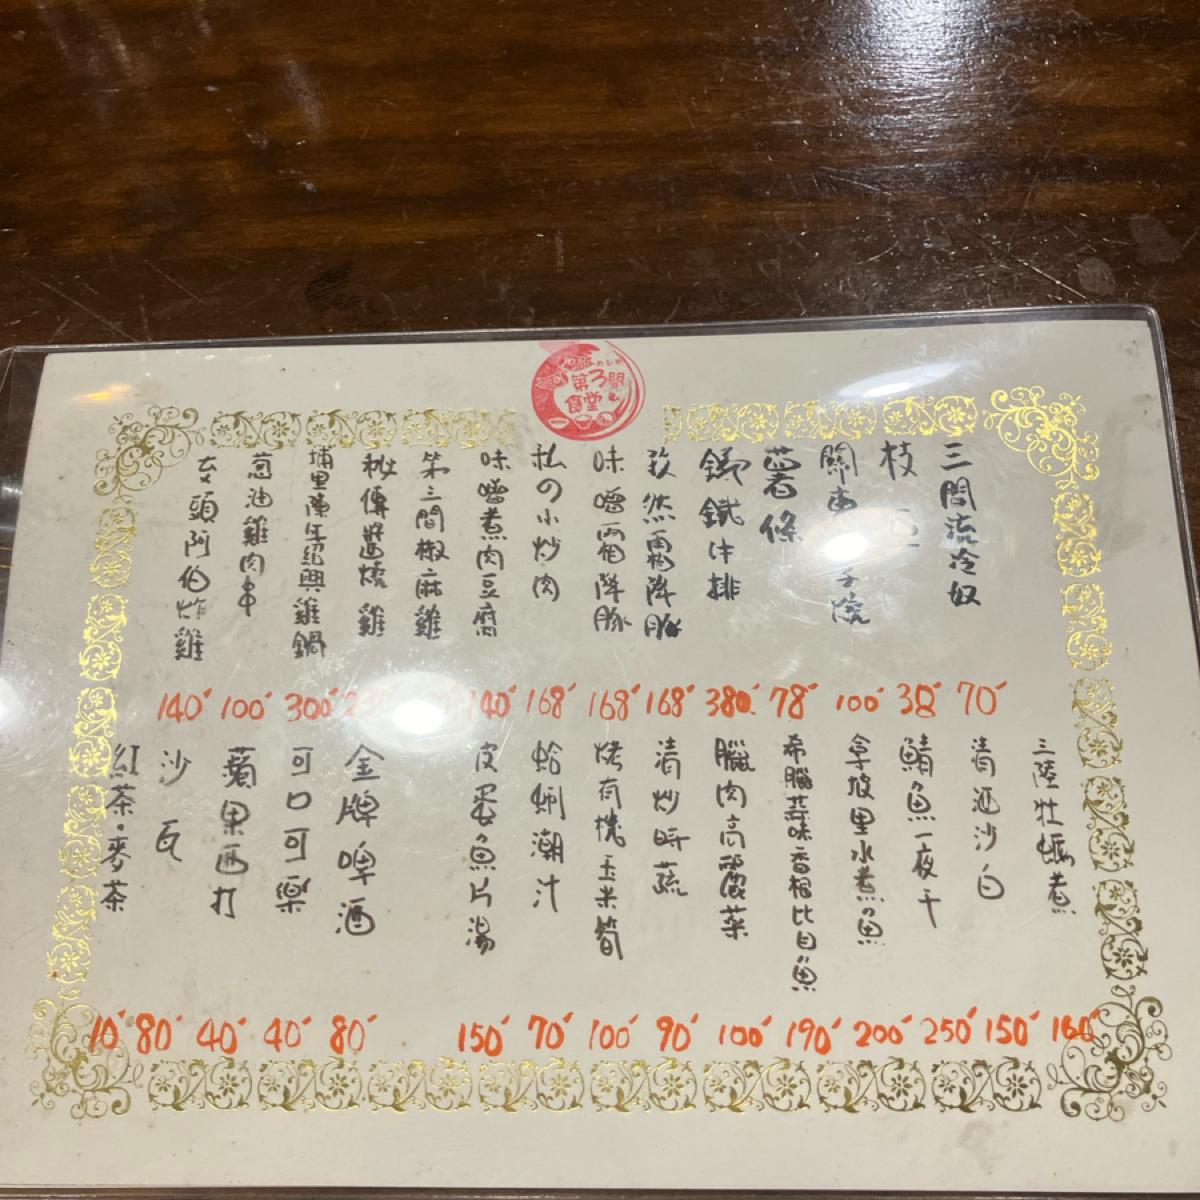 めしや
第3間
食堂
三間流冷奴 70
枝 38
關東 子燒 100
薯條 78
鑄鐵牛排 380
孜然霜降豚 168
味噌霜降豚 168
私の小炒肉 168
味噌煮肉豆腐 140
第三間椒麻雞
秘傳醬燒雞
埔里陳年紹興雞鍋 300
蔥油雞肉串 100
頭阿伯炸雞 140
三陸牡蠣煮 160
清酒沙白 150
鯖魚一夜干 250
拿坡里水煮魚 200
希臘蒜味香檳比目魚 190
臘肉高麗菜 100
清炒時蔬 90
烤有機玉米筍 100
蛤蜊潮汁 70
皮蛋魚片湯 150
金牌啤酒 80
可口可樂 40
蘋果西打 40
沙瓦 80
紅茶·麥茶 10